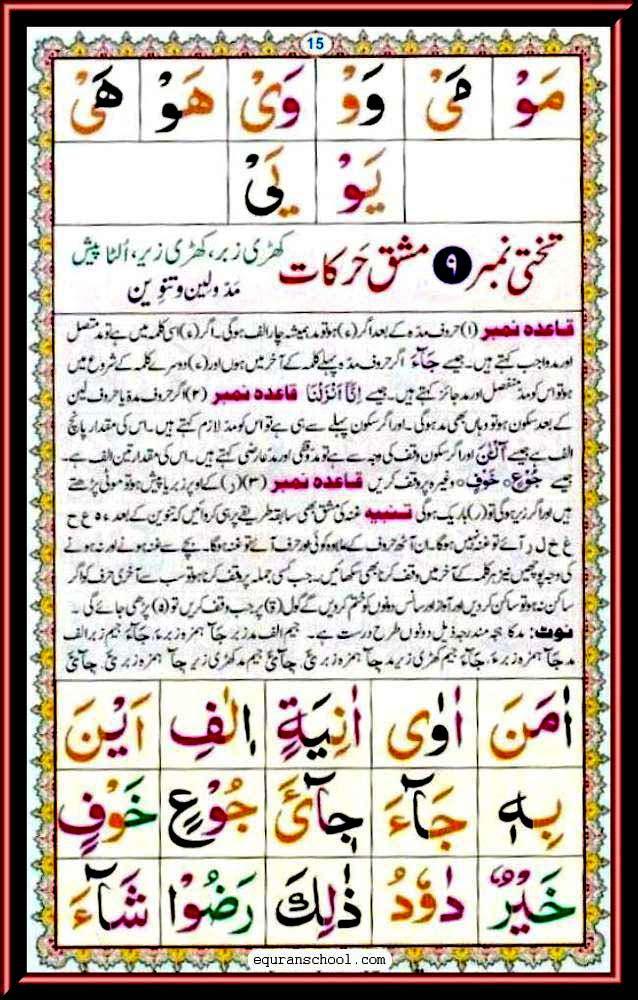 15
مَوْ مَیْ وَوْ وَیْ هَوْ هَیْ
یَوْ یَیْ
تختی نمبر ۹ مشق حَرکات کھڑی زبر، کھڑی زیر، اُلٹا پیش
مدّ و لین و تنوین
قاعدہ نمبر (۱) حروف مدّہ کے بعد اگر (ء) ہو تو مد ہمیشہ چار الف ہوگی۔ اگر (ء) اسی کلمہ میں ہے تو مد متصل
اور مد واجب کہتے ہیں۔ جیسے جَآءَ اگر حروف مدّہ پہلے کلمہ کے آخر میں ہوں اور (ء) دوسرے کلمہ کے شروع میں
ہو تو اس کو مد منفصل اور مد جائز کہتے ہیں۔ جیسے اِنَّاۤ اَنْزَلْنَا قاعدہ نمبر (۲) اگر حروف مدہ یا حروف لین
کے بعد سکون ہو تو وہاں بھی مد ہوگی۔ اور اگر سکون پہلے سے ہی ہے تو اس کو مد لازم کہتے ہیں۔ اس کی مقدار پانچ
الف ہے جیسے آٰلْـٰٔنَ اور اگر سکون وقف کی وجہ سے ہے تو مد وقفی اور مد عارضی کہتے ہیں۔ اس کی مقدار تین الف ہے۔
جیسے جُوْعٍ ۝ خَوْفٍ ۝ وغیرہ پر وقف کریں قاعدہ نمبر (۳) (ر) کے اوپر زبر یا پیش ہو تو موٹی پڑھتے
ہیں اور اگر زیر ہوگی تو (ر) باریک ہوگی تنبیہ غنہ کی مشق بھی سابقہ طریقے پر ہی کروائیں کہ تنوین کے بعد ء ہ ع ح
غ خ ل ر آئے تو غنہ نہیں ہوگا۔ ان آٹھ حروف کے علاوہ کوئی اور حرف آئے تو غنہ ہوگا۔ بچے سے غنہ ہونے اور نہ ہونے
کی وجہ پوچھیں نیز ہر کلمہ کے آخر میں وقف کرنا بھی سکھائیں۔ جب کسی جملہ پر وقف کرنا ہو تو سب سے آخری حرف کو اگر
ساکن نہ ہو تو ساکن کر دیں اور آواز اور سانس دونوں کو ختم کر دیں گے گول (ۃ) پر جب وقف کریں تو (ہ) پڑھی جائے گی۔
نوٹ: مد کا ہجہ مندرجہ ذیل دونوں طرح درست ہے۔ جیم الف مد زبر جَآ ہمزہ زبر ءَ، جَآءَ جیم زبر الف
مد جَآ ہمزہ زبر ءَ، جَآءَ جیم کھڑی زیر مد
اٰمَنَ اٰوٰی اٰنِیَةٍ اِلٰفِ اَیْنَ
بِهٖ جَآءَ جِایْٓئَ جُوْعٍ خَوْفٍ
خَیْرٌ دَاوٗدُ ذٰلِكَ رَضُوْا شَآءَ
equranschool.com